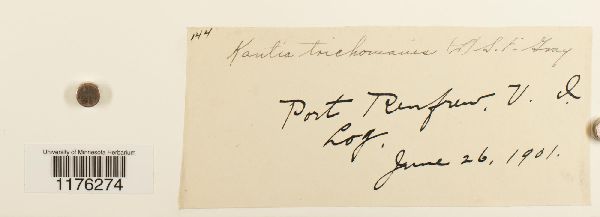 144
Kantia trichomanis (L) S. F. Gray
Port Renfrew, V. I.
Log.
June 26, 1901.
University of Minnesota Herbarium
1176274